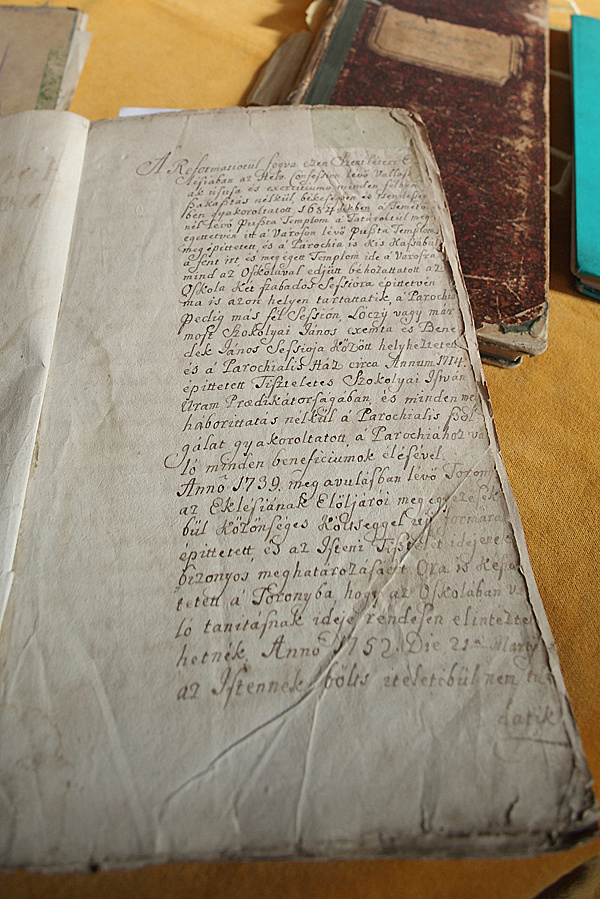 A Reformatiotúl fogva ezen Szentléteri E
lésiában az Helv. Confessión lévő Vallás
ak ususa és exercitiuma minden félben
szakasztás nélkűl, békeségben és tsendesség
ben gyakoroltatott 1684dikben a Temető
nél lévő Puszta Templom a Tatároktúl meg
egettetvén itt á Városon lévő Puszta Templom
meg építtetett és á Parochia is Kis Kassábúl
á fent írt és meg égett Templom ide á Városra
mind az Oskolával edjütt béhozattatott az
Oskola Két szabados Sessióra építtetvén
ma is azon helyen tartattatik, á Parochia
pedig más fél Session, Lóczÿ vagy már
most Szokolyai János exemta és Bene
dek János Sessioja Között helyheztetett
és á Parochialis Ház circa Annum 1714.
építtetett Tiszteletes Szokolyai István
Uram Prædikátorságában, és minden meg
háboríttatás nélkűl á Parochialis szol
gálat gyakoroltatott, á Parochiához va
ló minden beneficiumok élésével.
Annó 1739. meg avúlásban lévő Torony
az Eklésiának Elöljárói meg egyezések
búl Közönséges Költseggel új formára
építtetett, és az Isteni Tisztelet idejének
bizonyos meghatározásáért Óra is Készí
tetett á Toronyba hogy az Oskolában va
ló tanításnak ideje rendesen elintéztet
hetnék. Anno 1752. Die 21a Martÿ
az Istennek bölts itéletibűl nem tu
datik